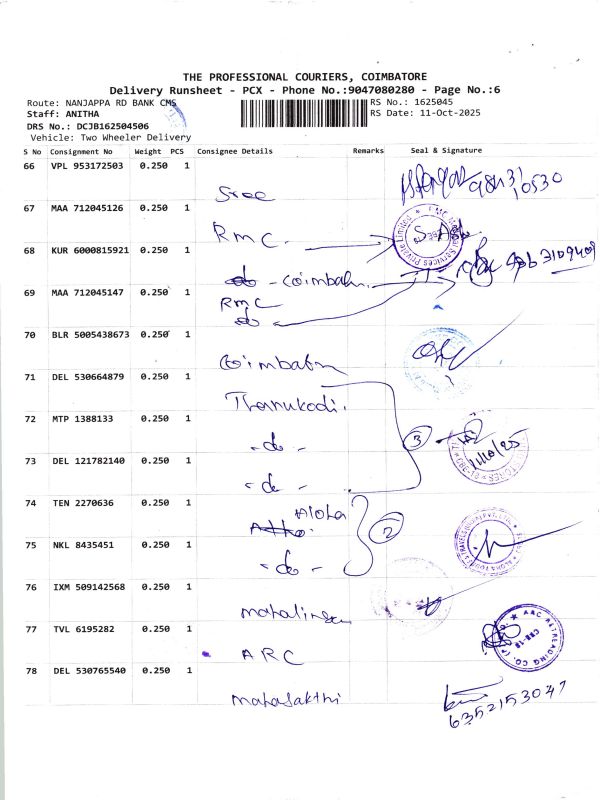 THE PROFESSIONAL COURIERS, COIMBATORE
Delivery Runsheet - PCX - Phone No.:9047080280 - Page No.:6
Route: NANJAPPA RD BANK CMS
RS No.: 1625045
Staff: ANITHA
RS Date: 11-Oct-2025
DRS No.: DCJB162504506
Vehicle: Two Wheeler Delivery
S No Consignment No Weight PCS Consignee Details Remarks Seal & Signature
66 VPL 953172503 0.250 1
Sree
67 MAA 712045126 0.250 1
RMC
68 KUR 6000815921 0.250 1
69 MAA 712045147 0.250 1
RMC
do
70 BLR 5005438673 0.250 1
71 DEL 530664879 0.250 1
Thanukodi.
72 MTP 1388133 0.250 1
- do -
3
11/10/25
73 DEL 121782140 0.250 1
- do -
74 TEN 2270636 0.250 1
Aloha
2
75 NKL 8435451 0.250 1
- do -
76 IXM 509142568 0.250 1
77 TVL 6195282 0.250 1
ARC
ARC RETREADING CO.
78 DEL 530765540 0.250 1
Mahasakthi
6352153047